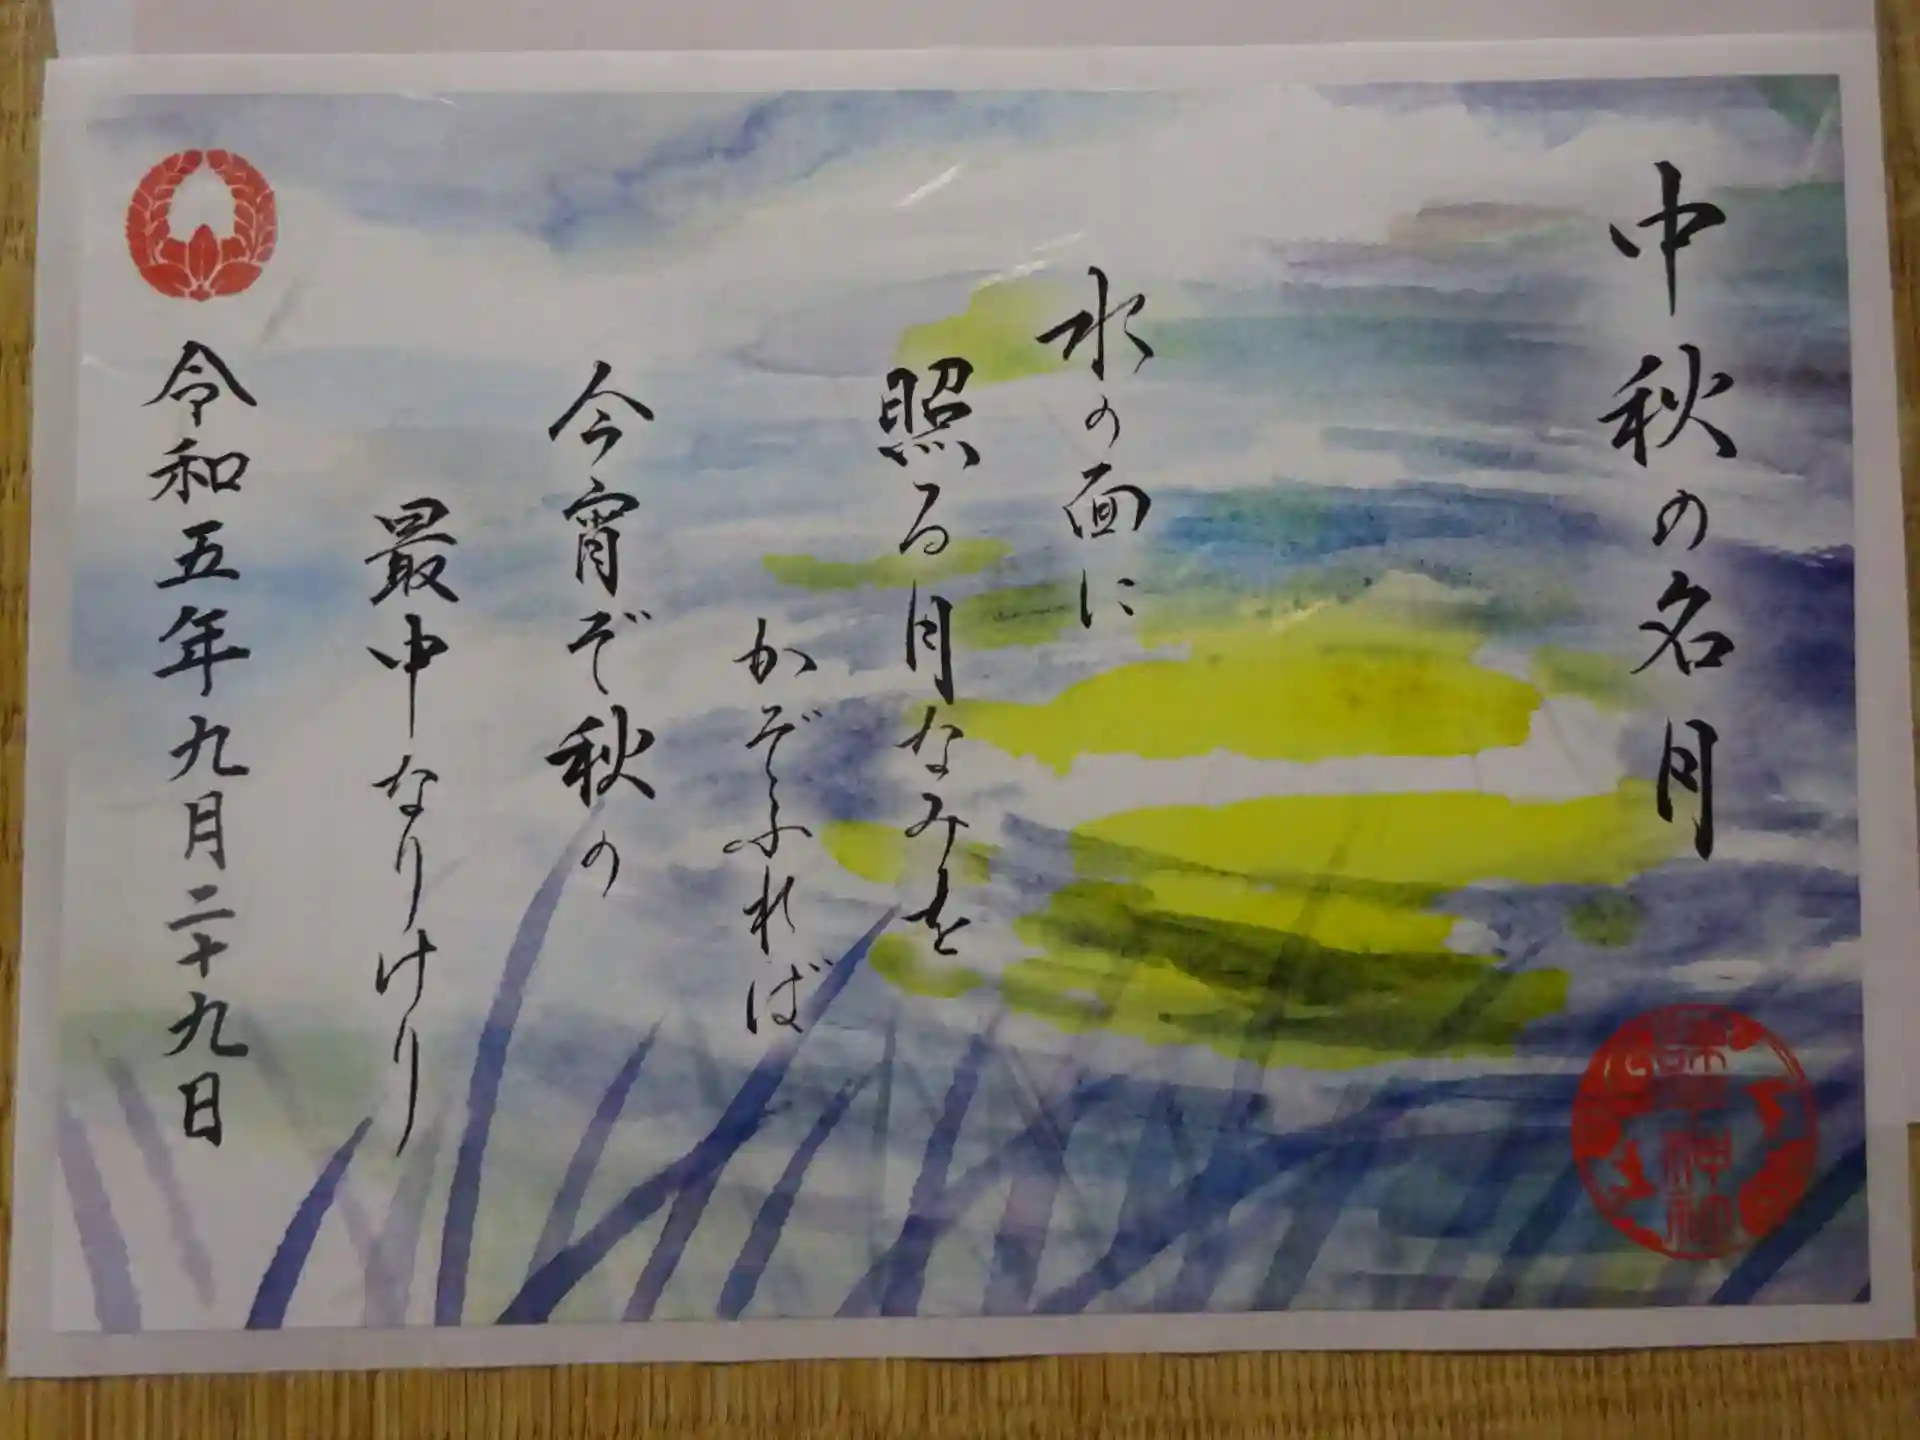 中秋の名月
水の面に
照る月なみを
かぞふれば
今宵ぞ秋の
最中なりけり
令和五年九月二十九日
神社